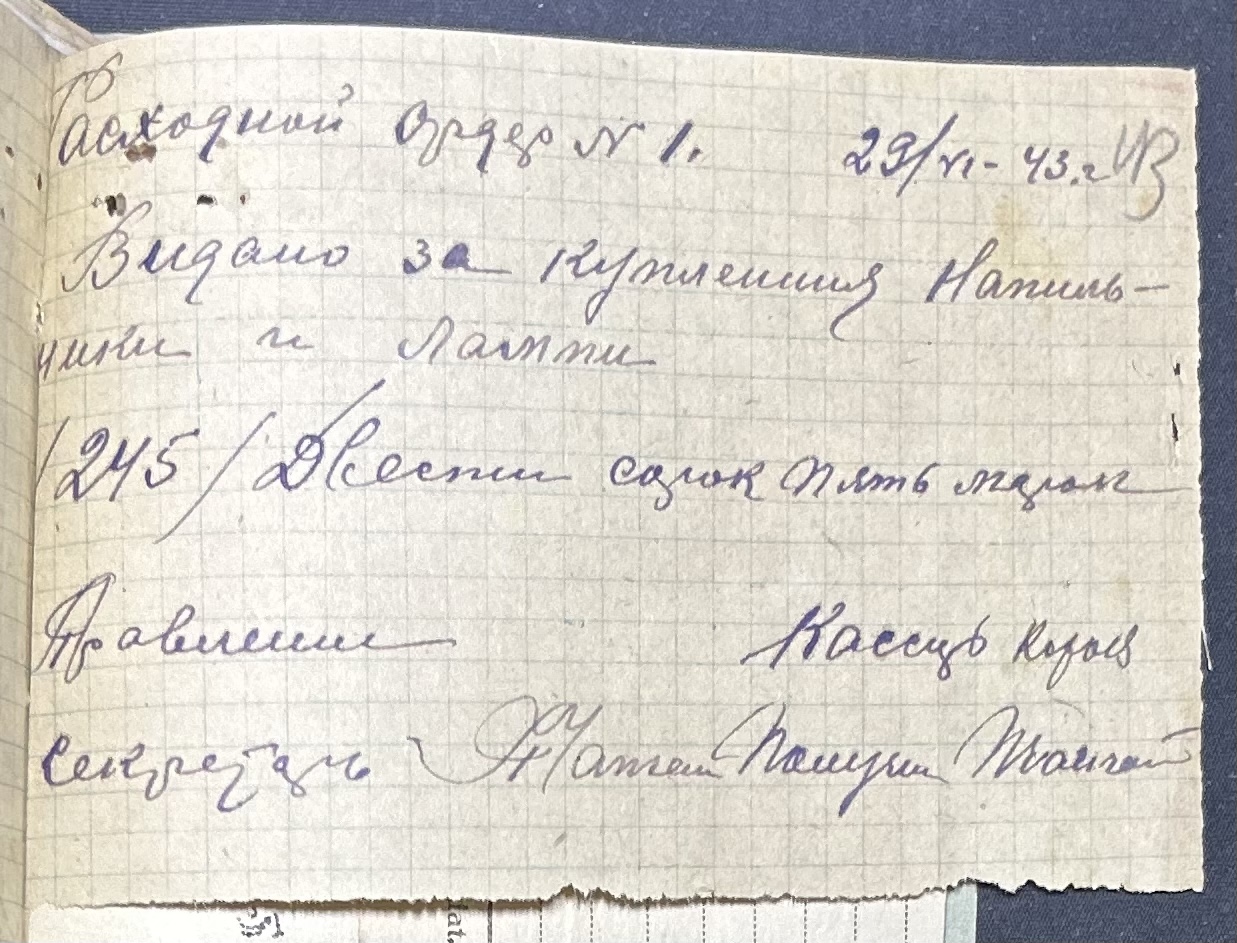 Расходной Ордер N 1. 29/VI-43.г
Видано за купленния Напиль-
ники и Лампи
/245/ Двести сорок пять марок
Правлении Кассир
Секретарь